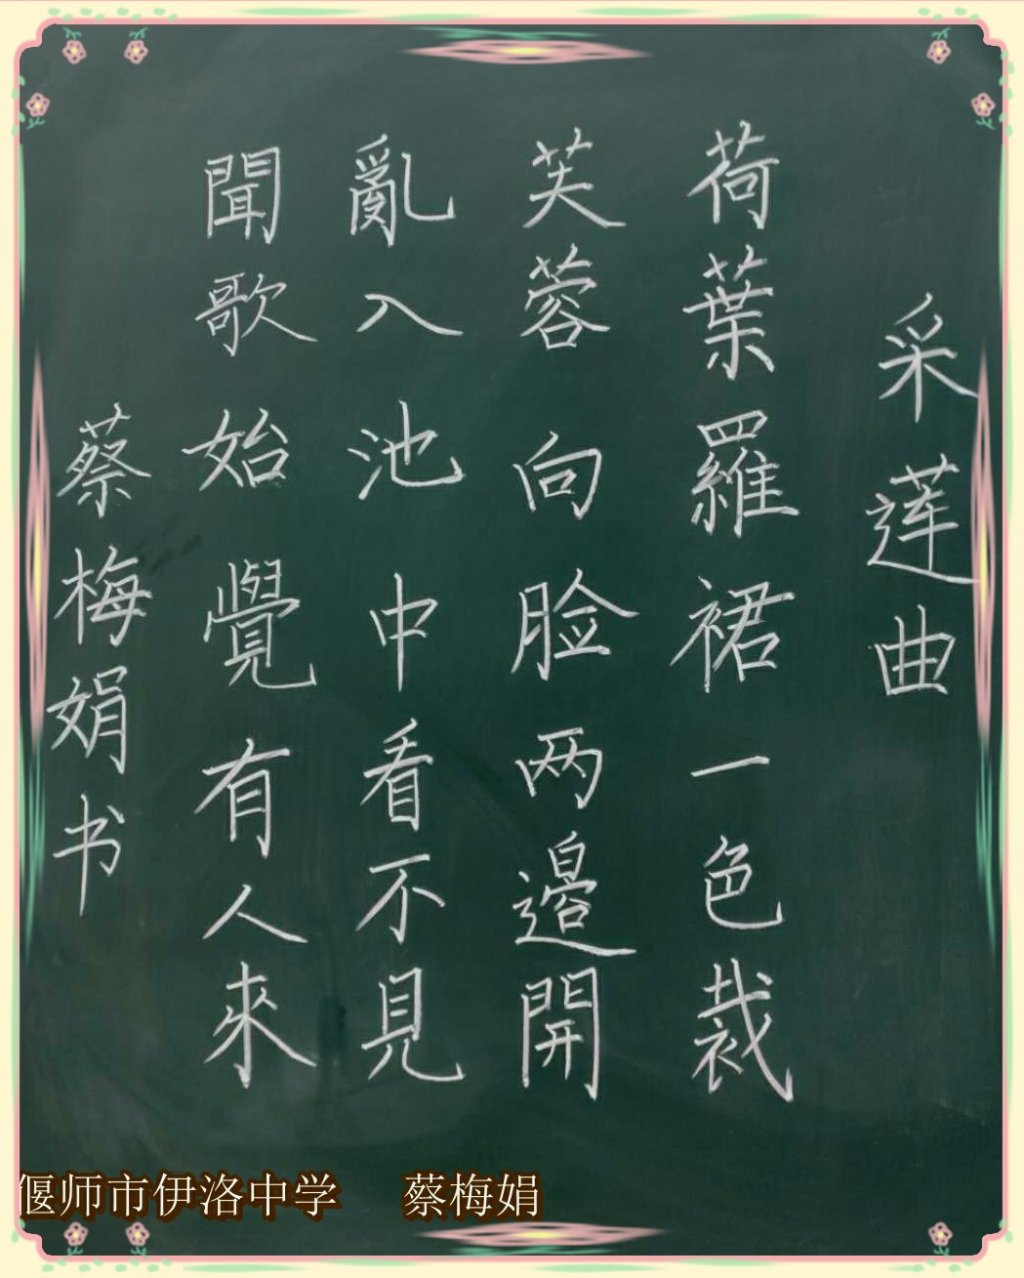 采莲曲
荷葉羅裙一色裁
芙蓉向脸两邊開
亂入池中看不見
聞歌始覺有人來
蔡梅娟书
偃师市伊洛中学 蔡梅娟